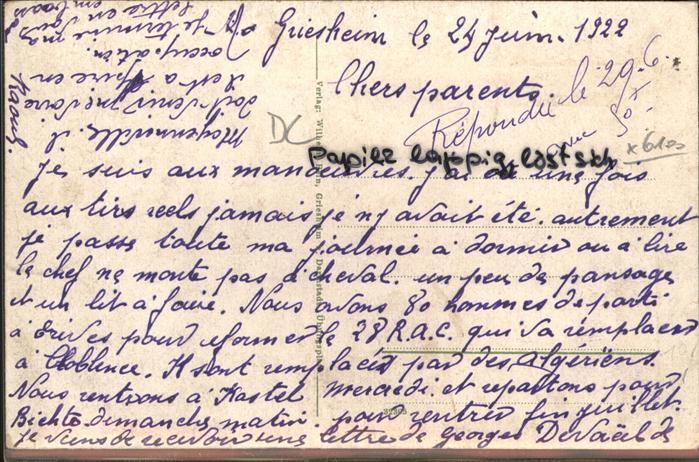 Griesheim le 24 Juin. 1922
Chers parents.
Répondu le 29-6
avec 30.-
DC
x6100
Je suis aux manœuvres. j'ai une fois
aux tirs réels jamais je n'y avait été. autrement
je passe toute ma journée à dormir ou à lire
le chef ne monte pas à cheval. un peu de pansage
et un lit à faire. Nous avons 80 hommes de parti
à pour reformer le 28 R.A.C. qui va remplacer
à Coblence. Ils sont remplacés par des algériens.
Nous rentrons à Kastel mercredi. et repartons pour
dimanche matin. pour rentrer fin juillet.
je viens de recevoir une lettre de Georges de
il
doit venir me voir
il est à faire en
occupation.
je termine ma
lettre en
Raoul.
Verlag: Griesheim b. Darmstadt